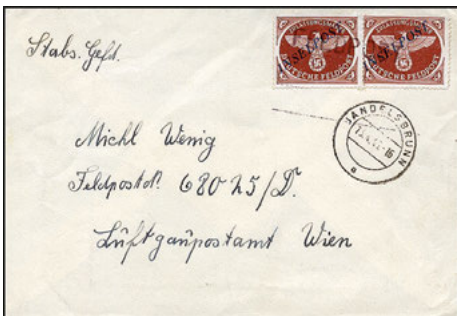 Stabs. Gefr.
INSELPOST INSELPOST
DEUTSCHE FELDPOST DEUTSCHE FELDPOST
JANDELSBRUNN
Michl Wenig
Feldpostnr. 68025/D.
Luftgaupostamt Wien